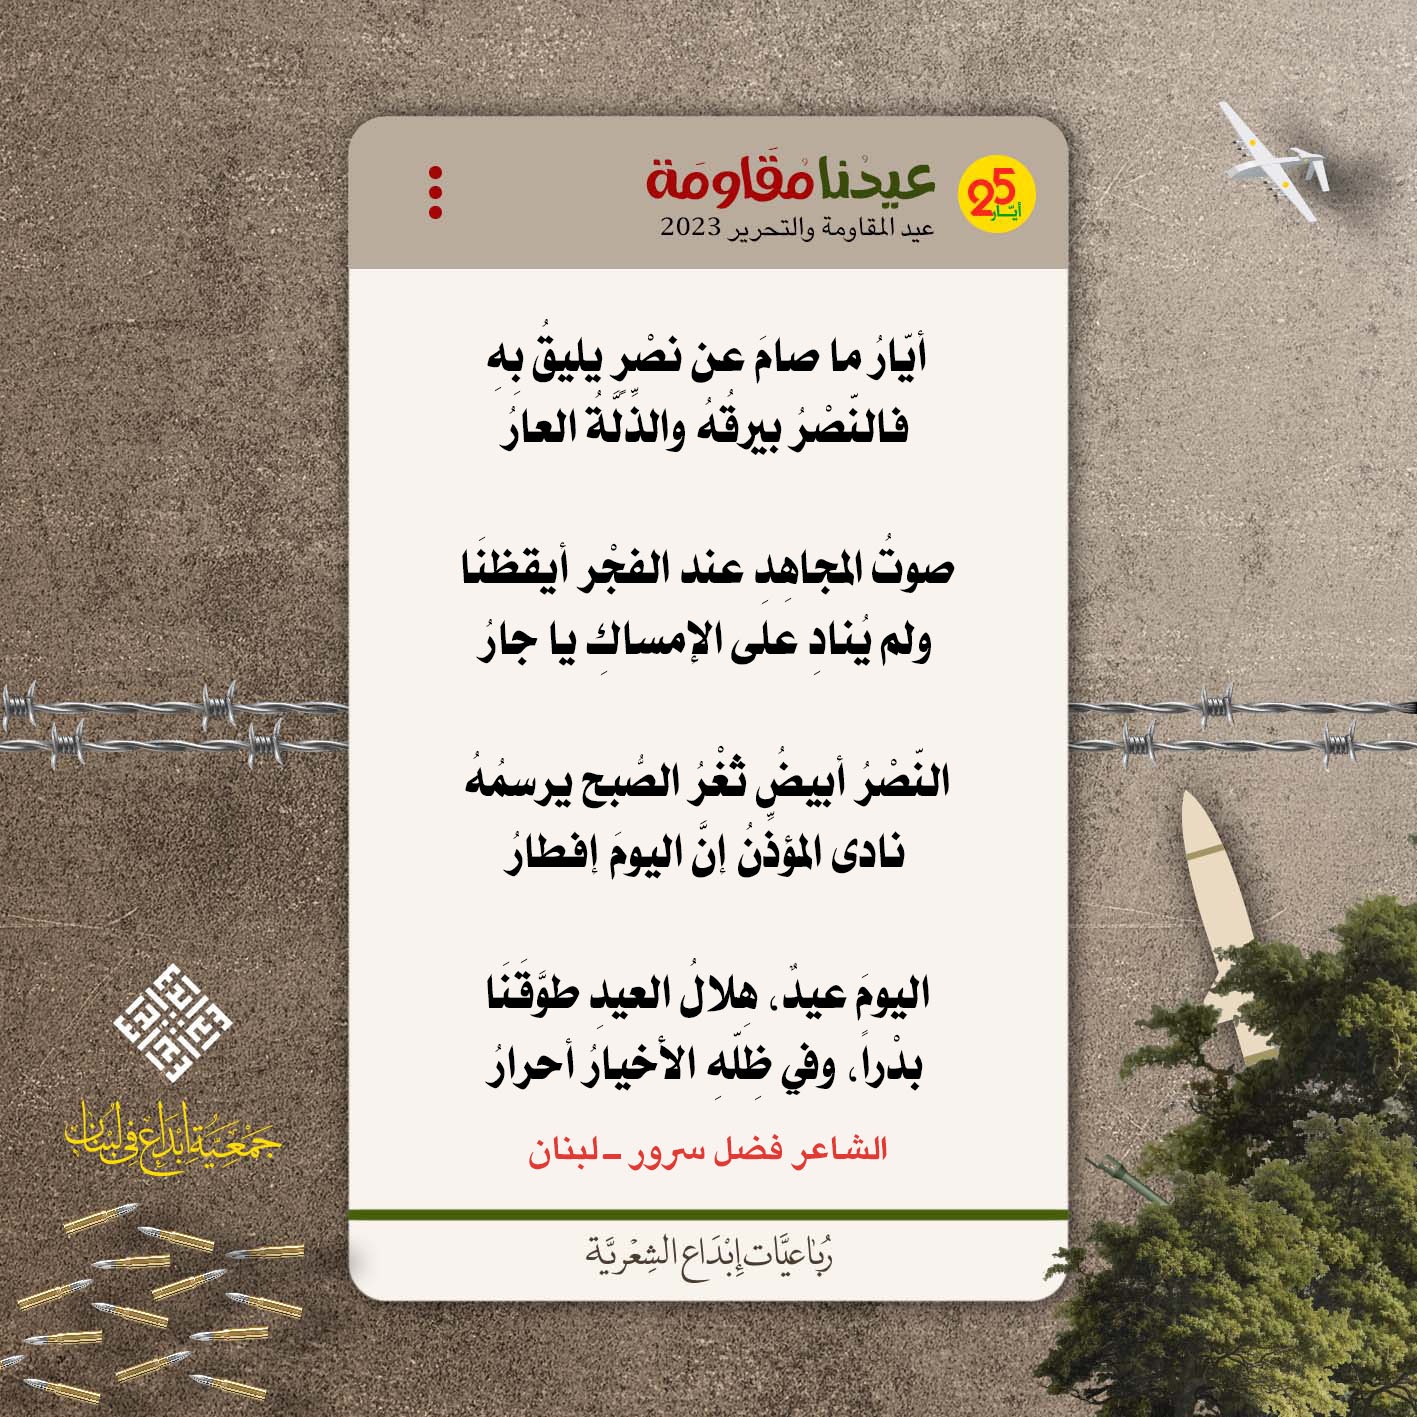 25
أيّار
عيدُنا مُقَاومَة
عيد المقاومة والتحرير 2023
أيّارُ ما صامَ عن نصْرٍ يليقُ بِهِ
فالنّصْرُ بيرقُهُ والذِّلَّةُ العارُ
صوتُ المجاهِدِ عند الفجْر أيقظنَا
ولم يُنادِ على الإمساكِ يا جارُ
النّصْرُ أبيضُ ثغْرُ الصُّبح يرسمُهُ
نادى المؤذِّنُ إنَّ اليومَ إفطارُ
اليومَ عيدٌ، هِلالُ العيدِ طوَّقَنَا
بدْراً، وفي ظِلّهِ الأخيارُ أحرارُ
الشاعر فضل سرور ـ لبنان
رُبَاعيَّات إِبْدَاع الشِعْريَّة
جَمْعِيَّة إبْدَاع في لبْنان